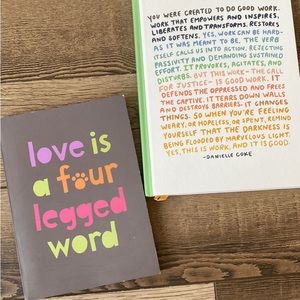 YOU WERE CREATED TO DO GOOD WORK.
WORK THAT EMPOWERS AND INSPIRES,
LIBERATES AND TRANSFORMS, RESTORES
AND SOFTENS. YES, WORK CAN BE HARD-
AS IT WAS MEANT TO BE. THE VERB
ITSELF CALLS US INTO ACTION, REJECTING
PASSIVITY AND DEMANDING SUSTAINED
EFFORT. IT PROVOKES, AGITATES, AND
DISTURBS. BUT THIS WORK-THE CALL
FOR JUSTICE-IS GOOD WORK. IT FREES
DEFENDS THE OPPRESSED AND FREES
THE CAPTIVE. IT TEARS DOWN WALLS
AND DESTROYS BARRIERS. IT CHANGES
THINGS. SO WHEN YOU'RE FEELING
WEARY, OR HOPELESS, OR SPENT, REMIND
YOURSELF THAT THE DARKNESS IS
BEING FLOODED BY MARVELOUS LIGHT.
YES, THIS IS WORK, AND IT IS GOOD.
-DANIELLE COKE
love is
a four
legged
word